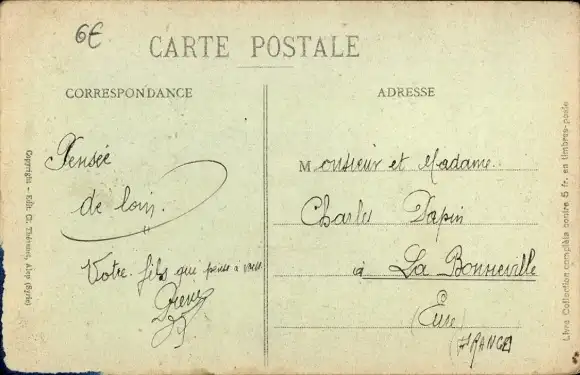 6€
CARTE POSTALE
CORRESPONDANCE
ADRESSE
Pensée
de loin.
Votre fils qui pense à vous
Monsieur et Madame
Charles Papin
à La Bonneville
(Eure)
(FRANCE)
Copyright - Edit. C. Thévenet, Aley (Syrie)
Livre Collection complète contre 5 fr. en timbres-poste